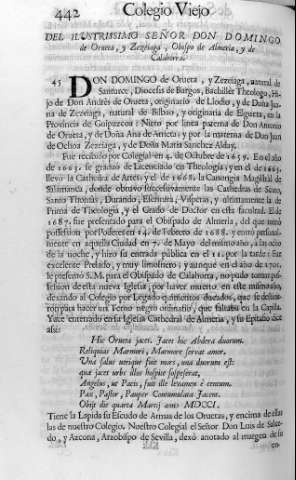 442 Colegio Viejo
DEL ILUSTRISSIMO SEÑOR DON DOMINGO
de Orueta, y Zezeiaga, Obispo de Almeria, y de
Calahorra.
45 DON DOMINGO de Orueta, y Zezeiaga, natural de
Santurce, Diocesis de Burgos, Bachiller Theologo, Hi-
jo de Don Andrés de Orueta, originario de Llodio, y de Doña Jua-
na de Zezeiaga, natural de Bilbao, y originaria de Elgueta, en la
Provincia de Guipuzcoa: Nieto por linea paterna de Don Antonio
de Orueta, y de Doña Ana de Arrieta; y por la materna de Don Juan
de Ochoa Zezeiaga, y de Doña Maria Sanchez Alday.
Fue recibido por Colegial en 4. de Octubre de 1659. En el año
de 1663. se graduó de Licenciado en Theologia, y en el de 1665.
llevó la Cathedra de Artes, y el de 1668. la Canongia Magistral de
Salamanca, donde obtuvo successivamente las Cathedras de Scoto,
Santo Thomás, Durando, Escritura, Visperas, y ultimamente la de
Prima de Theologia, y el Grado de Doctor en esta facultad. El de
1687. fue presentado para el Obispado de Almeria, del que tomó
possession por Poderes en 14. de Febrero de 1688. y entró personal-
mente en aquella Ciudad en 7. de Mayo del mismo año, à las ocho
de la noche, y hizo su entrada pública en el 11. por la tarde: fue
excelente Prelado, y muy limosnero; y aunque en el año de 1701.
le presentó S. M. para el Obispado de Calahorra, no pudo tomar pos-
session de esta nueva Iglesia, por haver muerto en este mismo año,
dexando al Colegio por Legado quinientos ducados, que se destina-
ron para hacer un Terno negro ordinario, que faltaba en la Capilla.
Yace enterrado en su Iglesia Cathedral de Almeria, y su Epitafio dice
asi:
Hic Orueta jacet. Jacet hic Abdera duorum.
Reliquias Marmori, Marmore servat amor.
Una salus utrique fuit mors, una duorum est:
quæ jacet urbs illius hospite sospes erat.
Angelus, ut Pacis, fuit ille
Pax, Pastor, Pauper Jacent.
Obijt die quarta Martij anno MDCCI.
Tiene la Lapida su Escudo de Armas de los Oruetas, y encima de ellas
las de nuestro Colegio. Nuestro Colegial el Señor Don Luis de Salce-
do, y Azcona, Arzobispo de Sevilla, dexó anotado al margen de su
en-